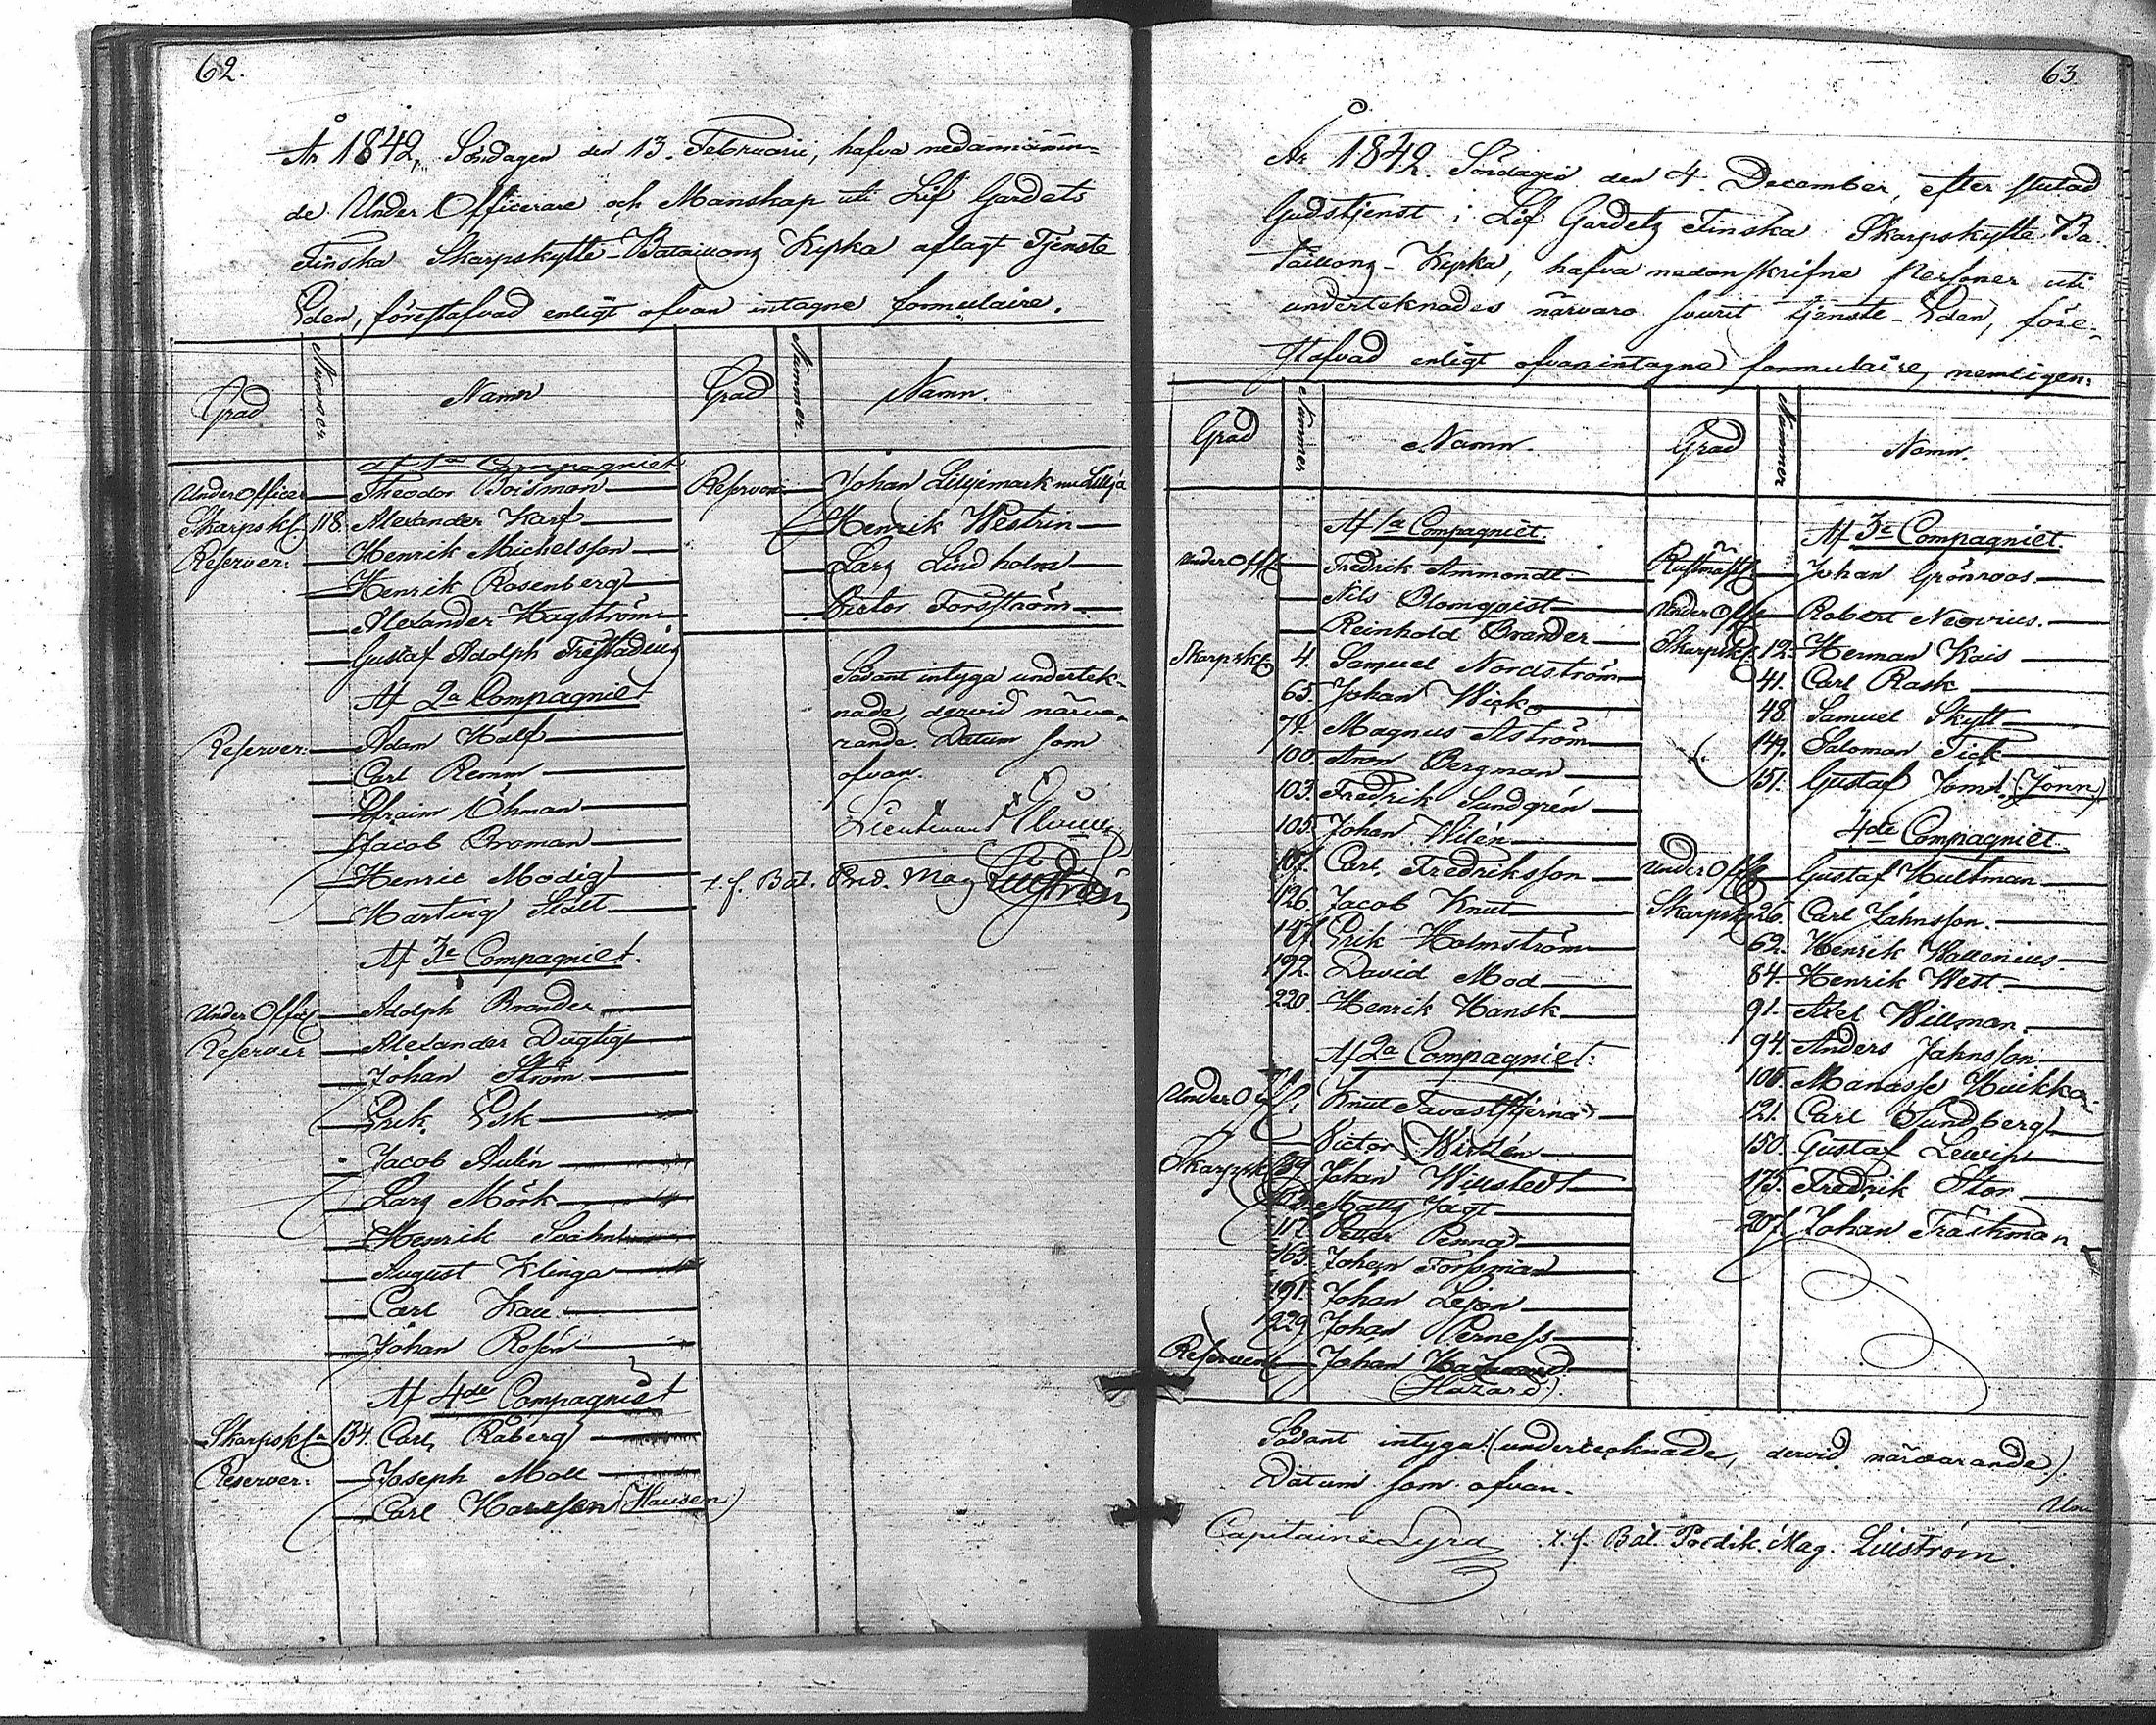 62.
År 1842, Söndagen den 13. Februarii, hafva nedannämn-
de Under Officerare och Manskap uti Lif Gardets
Finska Skarpskytte-Bataillons Kyrka aflagt Tjenste
Eden, förestafvad enligt ofvan intagne formulaire.
Grad Nummer Namn
af 1a Compagniet
UnderOfficer — Theodor Boisman
Skarpsk. 118. Alexander Karf
Reserver: Henrik Michelsson
Henrik Rosenberg
Alexander Hagström
Gustaf Adolph
Af 2a Compagniet
Reserver: Adam Half
Carl Remm
Efraim Öhman
Jacob Broman
Henric Modig
Hartvig Stålt
Af 3e Compagniet.
Under Offic. Adolph Brander
Reserver Alexander Dugtig
Johan Ström
Erik Esk
Jacob Aulén
Lars Mörk
Henrik Svahn
August Klinga
Carl Kall
Johan Rosén
Af 4de Compagniet
Skarpsk. 134. Carl Råberg
Reserver: Joseph Moll
Carl (Hausen)
Grad Nummer. Namn.
Reserver Johan Liljemark nu Lilja
Henrik Westrin
Lars Lindholm
Victor Forsström
Sådant intyga undertek-
nade, dervid närva-
rande. Datum som
ofvan.
Lieutenant
t. f. Bat. Pred. Mag Lillström
63.
År 1842. Söndagen den 4. December, efter slutad
Gudstjenst i Lif Gardets Finska Skarpskytte Ba-
taillons-Kyrka, hafva nedanskrifne Personer uti
underteknades närvaro svurit tjenste-Eden, före-
stafvad enligt ofvanintagne formulaire, nemligen:
Grad Nummer Namn.
Af 1a Compagniet.
Under Off. Fredrik Ammondt
Nils Blomqvist
Reinhold Brander
Skarpsk. 4. Samuel Nordström
65. Johan Wirko
74. Magnus Åström
100. Aron Bergman
103. Fredrik Sundgrén
105. Johan Wilén
107. Carl Fredriksson
126. Jacob Knut
147. Erik Holmström
192. David Mod
220. Henrik Hansk
Af 2a Compagniet.
Under Off. Knut Tavaststjerna
Victor Wirdén
Skarpsk. 89. Johan Willstedt
103. Matts Jagt
117. Petter Penna
163. Johan Forssman
191. Johan Lejon
229. Johan Perness
Reserven Johan
(Hazard).
Grad Nummer Namn.
Af 3e Compagniet.
Rustmäst. Johan Grönroos
Under Off. Robert Neovius.
Skarpsk. 12. Herman Kais
41. Carl Rask
48. Samuel Skytt
149. Saloman Tick
151. Gustaf Jomt. (Jonn)
4de Compagniet.
Under Off. Gustaf Hultman
Skarpsk. 26. Carl Jahnsson.
62. Henrik Wallenius
84. Henrik West
91. Axel Willman
94. Anders Jahnsson
106. Manasse Huikka
121. Carl Sundberg
150. Gustaf Lewin
175. Fredrik Stor
207. Johan Träskman
Sådant intyga (underteknade, dervid närvarande).
Datum som ofvan.
Un-
Capitaine Lyra t. f. Bat. Predik. Mag. Lillström.